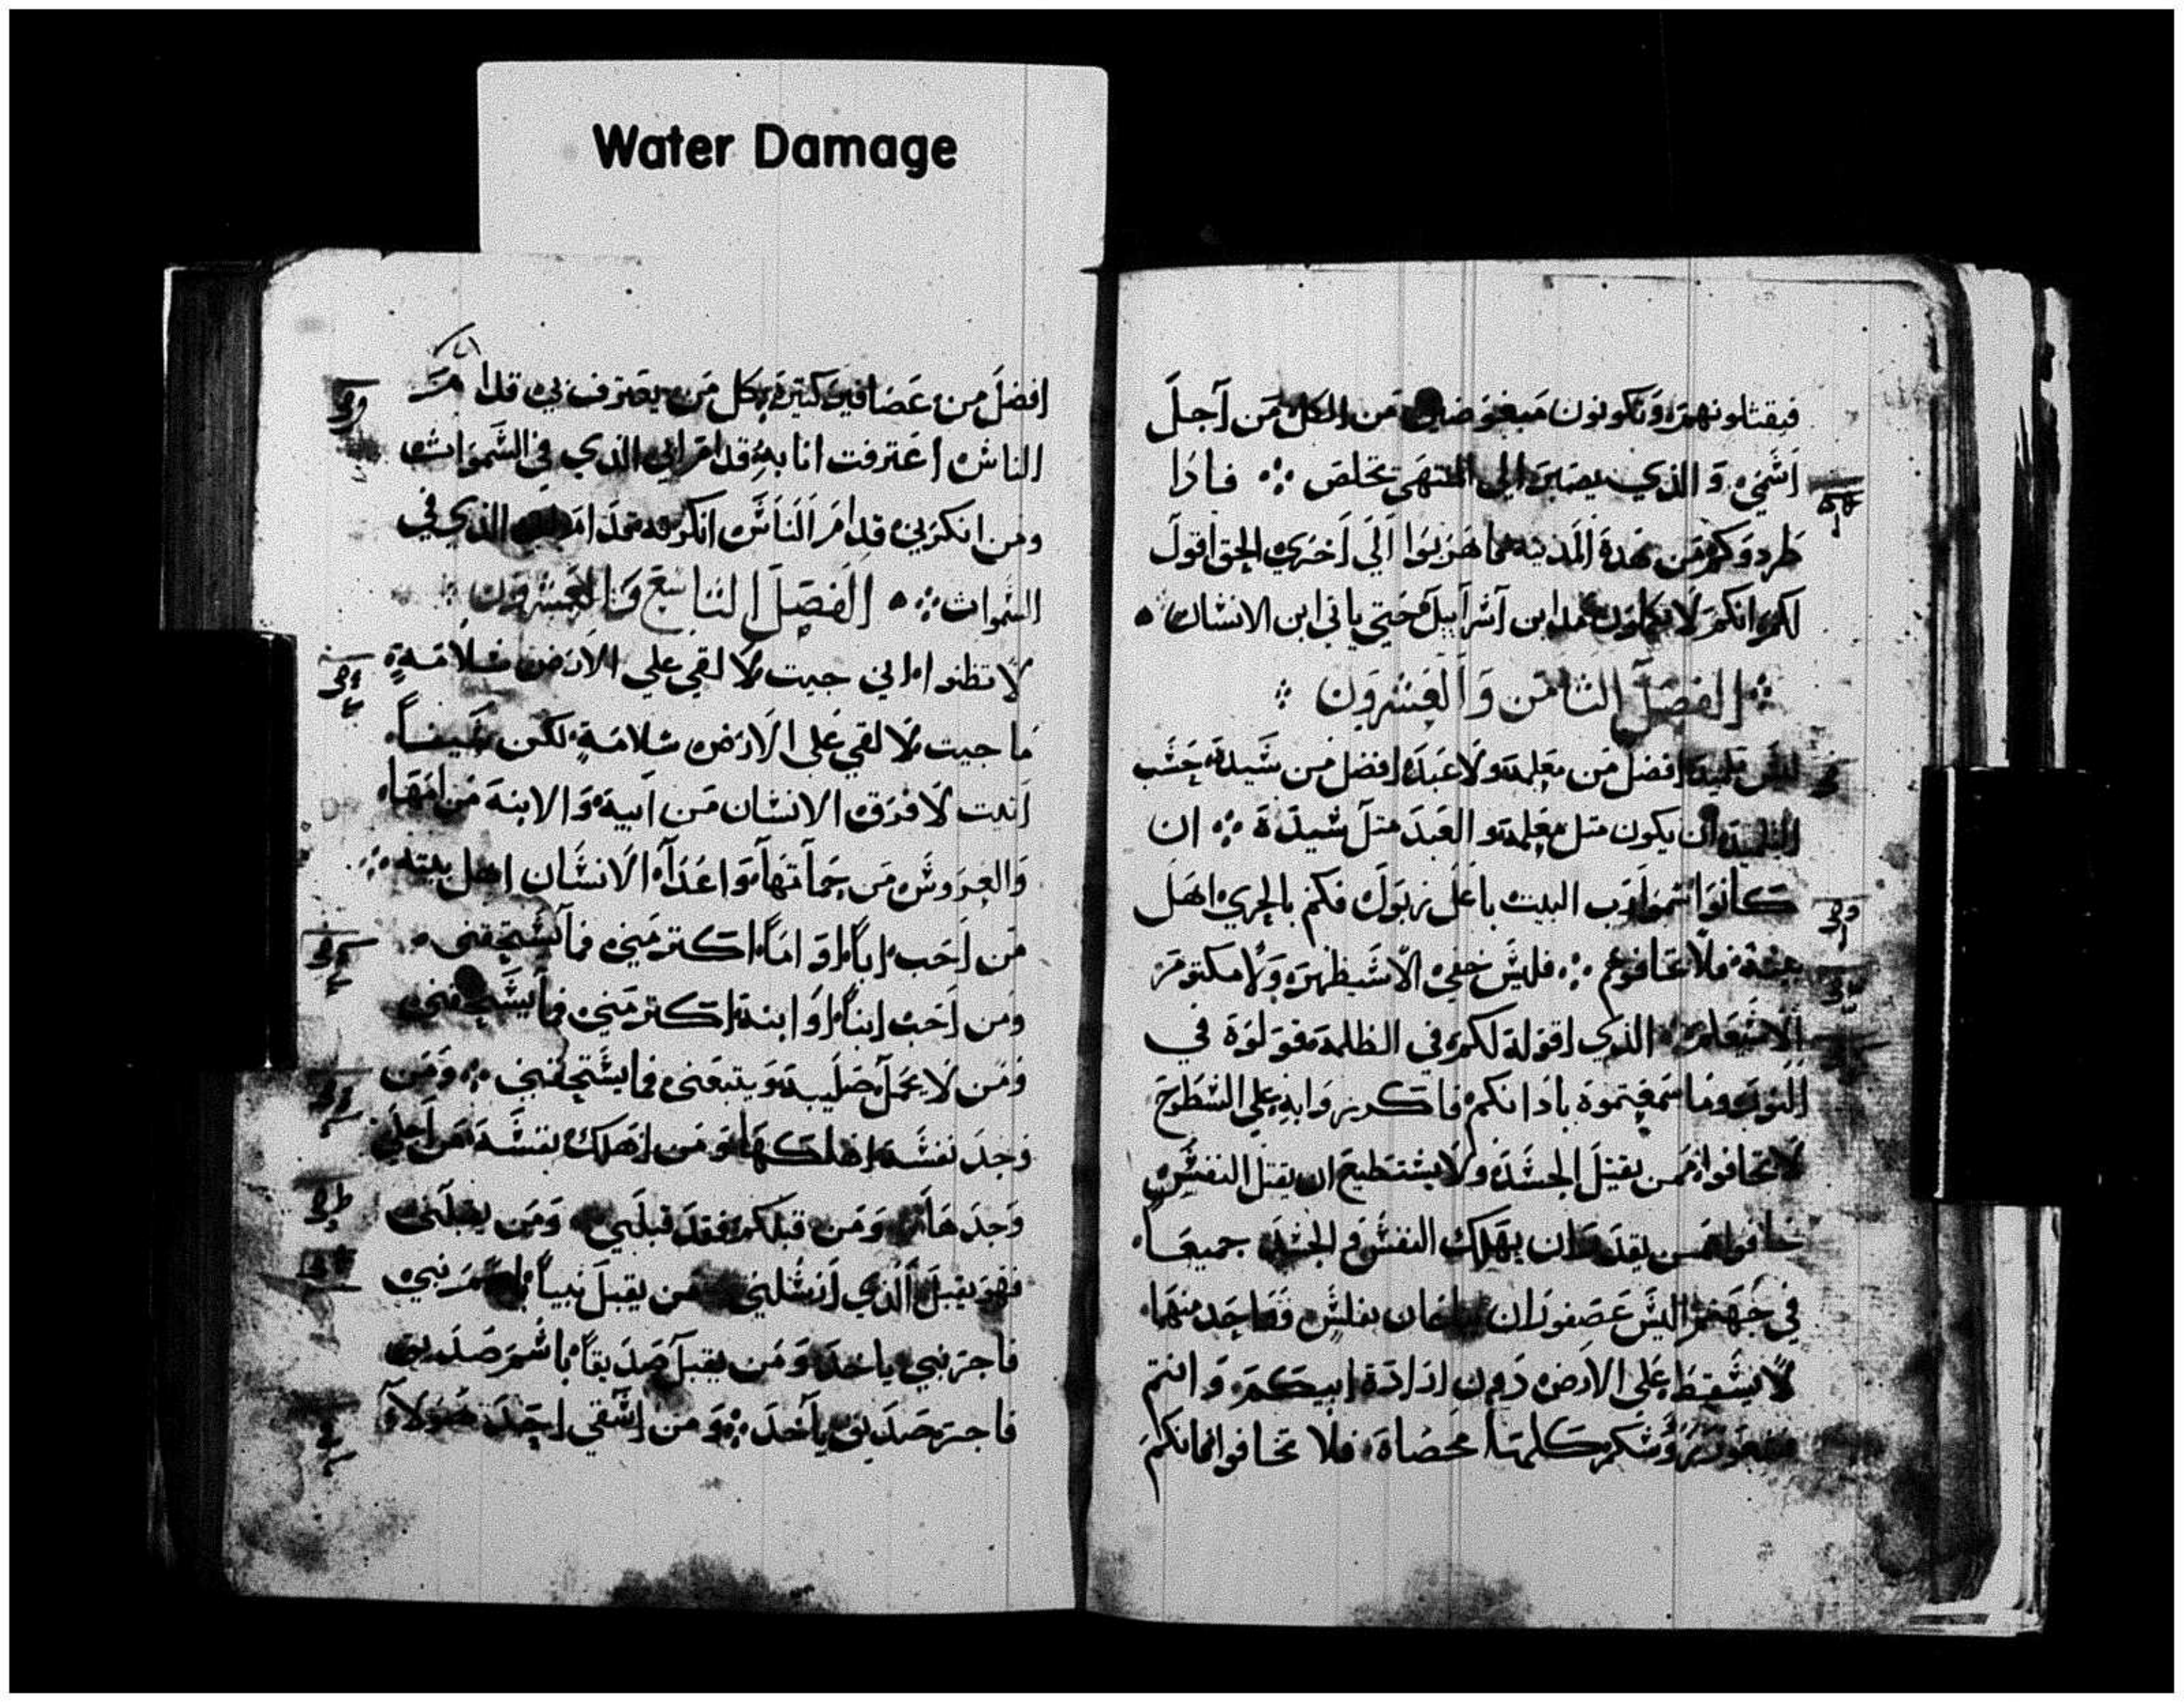 Water Damage
فيقتلونهم وتكونون مبغوضين من الكل من آجل
اسمي والذي يصبر الي المنتهي يخلص ؞ فادا
طردوكم من هدة المدينه فاهربوا الي اخري الحق اقول
لكم انكم لا تكملون مدن آسراييل حتي ياتي ابن الانسان
؞ الفصل الثامن والعشرون ؞
ليس تلميد افضل من معلمه ولا عبد افضل من سيدة حسب
التلميد ان يكون متل معلمه والعبد متل سيدة ؞ ان
كانوا سموا رب البيت باعل زبول فكم بالحري اهل
بيته فلا تخافوهم ؞ فليس خفي الا سيظهر ولا مكتوم
الا سيعلم الذي اقولة لكم في الظلمة فقولوة في
النور وما سمعتموة بادانكم فاكرزوا به علي السطوح
لا تخافوا ممن يقتل الجسد ولا يستطيع ان يقتل النفس
خافوا ممن يقدر ان يهلك النفس والجسد جميعا
في جهنم اليس عصفوران يباعان بفلس وواحد منهما
لا يسقط علي الارض دون ارادة ابيكم وانتم
فشعور روسكم كلها محصاة فلا تخافوا فانكم
افضل من عصافير كتيرة فكل من يعترف بي قدام
الناس اعترفت انا به قدام ابي الذي في السموات
ومن انكرني قدام الناس انكرته قدام ابي الذي في
السموات ؞ الفصل التاسع والعشرون
لا تظنوا اني جيت لالقي علي الارض سلامة
ما جيت لالقي علي الارض سلامة لكن سيفا
اتيت لافرق الانسان من ابية والابنة من امها
والعروس من حماتها واعدآ الانسان اهل بيته ؞
من احب ابا او اما اكتر مني فما يستحقني
ومن احب ابنا او ابنة اكتر مني فما يستحقني
ومن لا يحمل صليبه ويتبعني فما يستحقني ؞ ومن
وجد نفسه اهلكها ومن اهلك نفسه من اجلي
وجدها ومن قبلكم فقد قبلني ومن يقبلني
فهو يقبل الذي ارسلني من يقبل نبيا باسم نبي
فاجر نبي ياخد ومن يقبل صديقا باسم صديق
فاجر صديق ياخد ؞ ومن اسقي احد هولآ